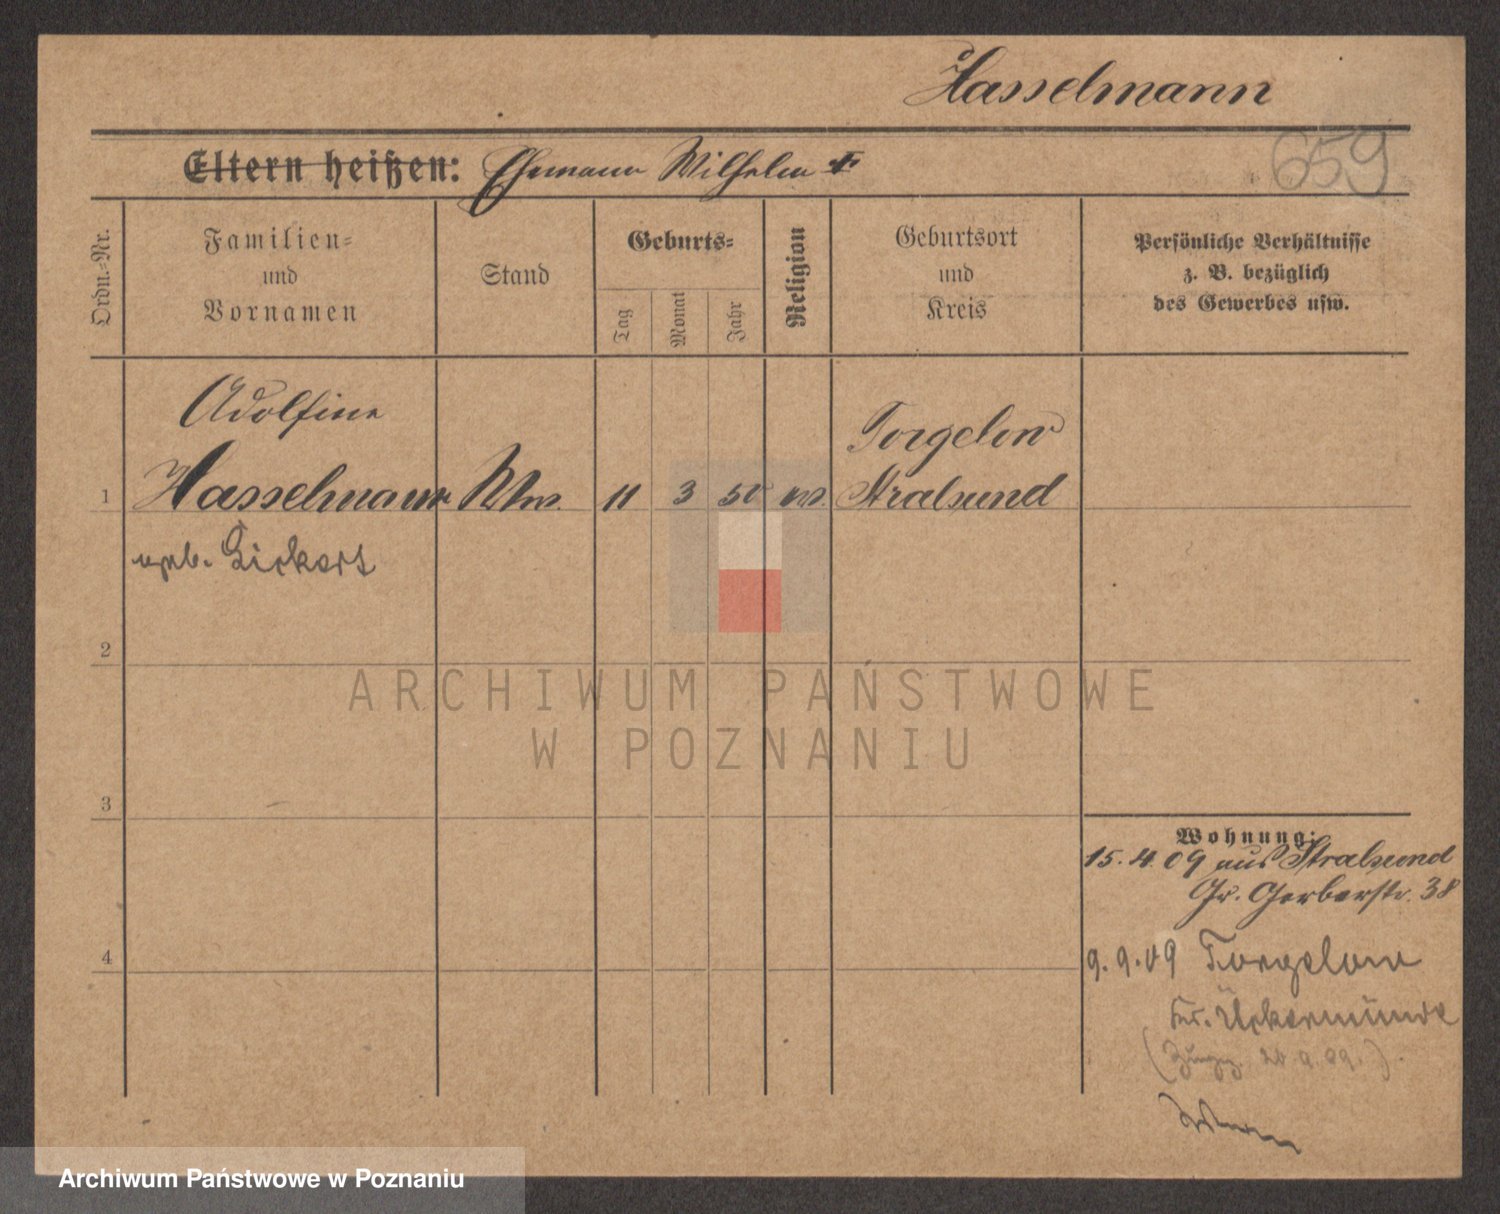 Hasselmann
659
Eltern heißen: Ehemann Wilhelm †
Ordn.-Nr.
Familien-
und
Vornamen
Stand
Geburts-
Tag
Monat
Jahr
Religion
Geburtsort
und
Kreis
Persönliche Verhältnisse
z. B. bezüglich
des Gewerbes usw.
Adolfine
Torgelow
1 Hasselmann Wwe. 11 3 50 ev. Stralsund
geb. Lickert
2
3
Wohnung:
15.4.09 aus Stralsund
Gr. Gerberstr. 38
4
9.9.09 Torgelow
Krs. Ückermünde
(Zuzg. 20.9.09.).
ARCHIWUM PAŃSTWOWE
W POZNANIU
Archiwum Państwowe w Poznaniu